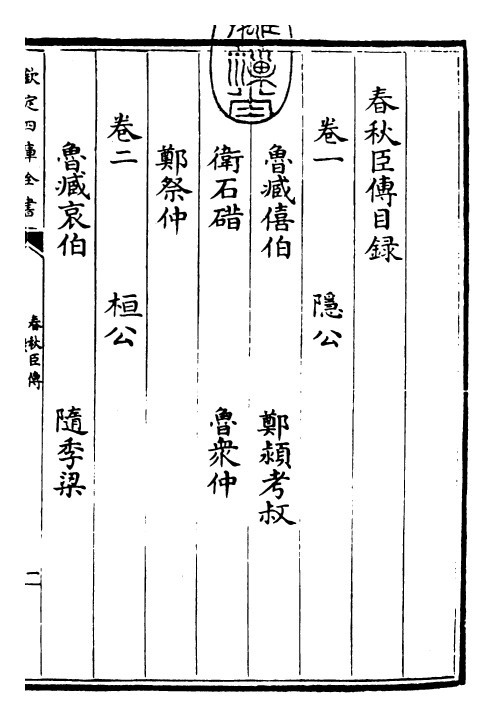 春秋臣傳目録
卷一　隱公
魯臧僖伯　鄭潁考叔
衛石碏　魯衆仲
鄭祭仲
卷二　桓公
魯臧哀伯　隨季梁
欽定四庫全書
春秋臣傳